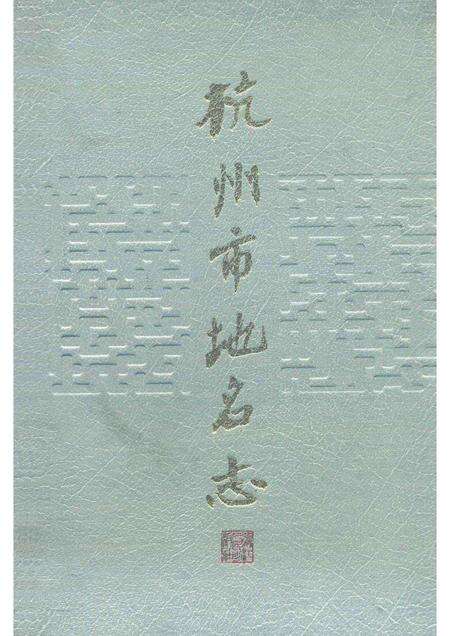 杭州市地名志